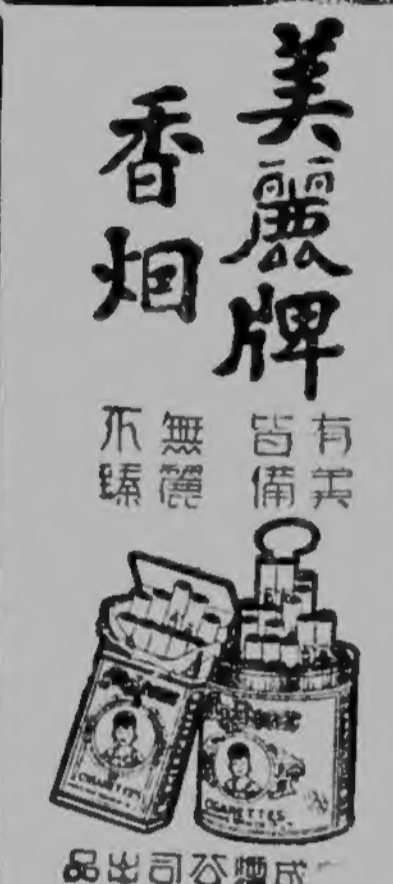 美麗牌
香烟
有美
皆備
無麗
不臻
CIGARETTES
CIGARETTES
成煙公司出品